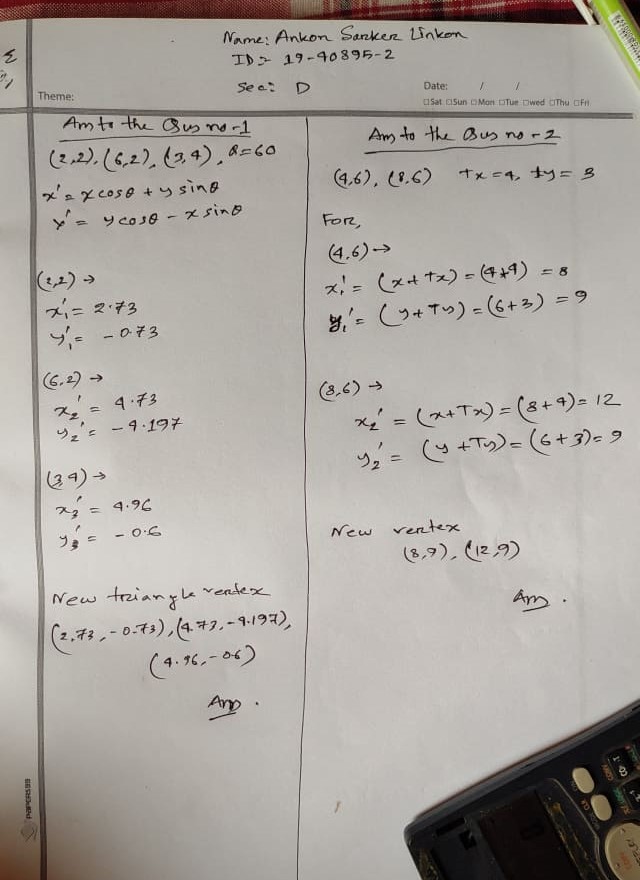 Name: Ankon Sarker Linkon
ID:- 19-40895-2
Sec: D
Theme:
Date: / /
Sat Sun Mon Tue Wed Thu Fri
Ans to the Ques no-1
(2,2), (6,2), (3,4), θ=60
x' = x cosθ + y sinθ
y' = y cosθ - x sinθ
(2,2) →
x₁' = 2.73
y₁' = -0.73
(6,2) →
x₂' = 4.73
y₂' = -4.197
(3,4) →
x₃' = 4.96
y₃' = -0.6
New triangle vertex
(2.73, -0.73), (4.73, -4.197),
(4.96, -0.6)
Ans.
Ans to the Ques no-2
(4,6), (8,6) tx=4, ty=3
For,
(4,6) →
x₁' = (x+Tx) = (4+4) = 8
y₁' = (y+Ty) = (6+3) = 9
(8,6) →
x₂' = (x+Tx) = (8+4) = 12
y₂' = (y+Ty) = (6+3) = 9
New vertex
(8,9), (12,9)
Ans.
PAPERS99